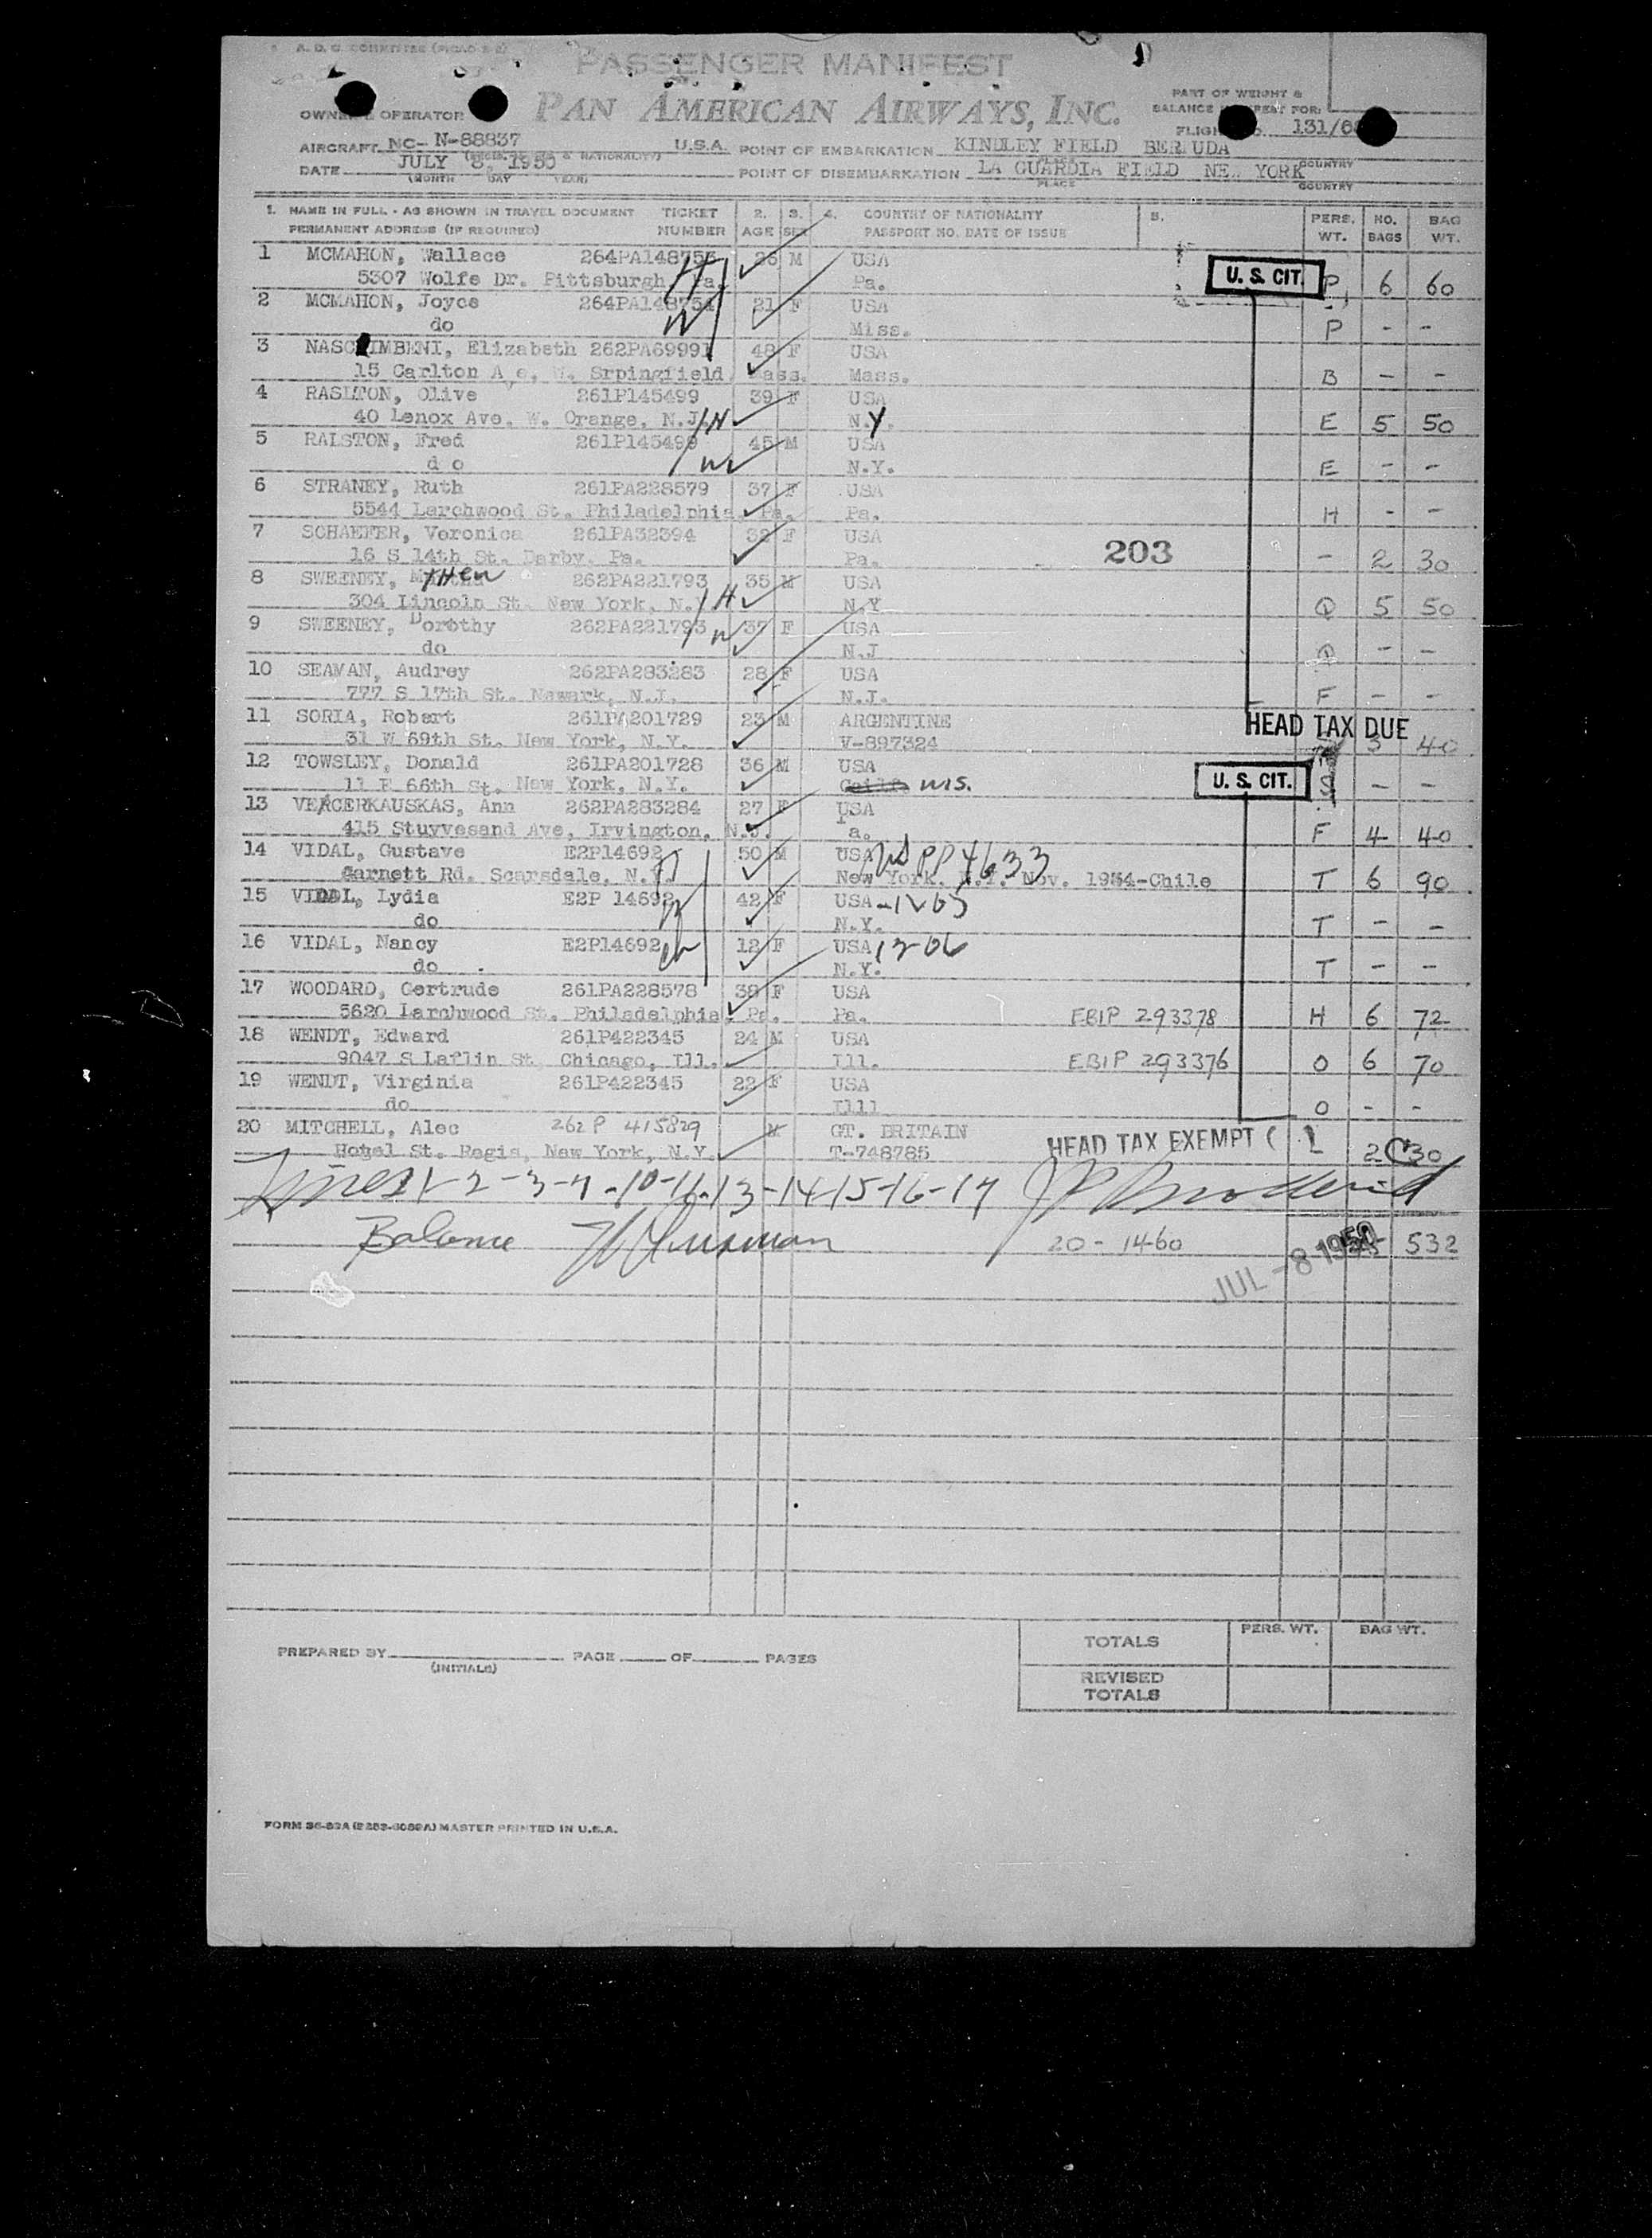 PASSENGER MANIFEST
PAN AMERICAN AIRWAYS, INC.
PART OF WEIGHT &
BALANCE FOR:
OPERATOR
131/
AIRCRAFT NC- N-88837 U.S.A. POINT OF EMBARKATION KINDLEY FIELD BERMUDA
DATE JULY 8, 1950 POINT OF DISEMBARKATION LA GUARDIA FIELD NEW YORK
(MONTH DAY YEAR) PLACE COUNTRY
1. NAME IN FULL - AS SHOWN IN TRAVEL DOCUMENT TICKET 2. 3. 4. COUNTRY OF NATIONALITY 5. PERS. NO. BAG
PERMANENT ADDRESS (IF REQUIRED) NUMBER AGE SEX PASSPORT NO. DATE OF ISSUE WT. BAGS WT.
1 MCMAHON, Wallace 264PA148753 26 M USA
5307 Wolfe Dr. Pittsburgh, Pa. H Pa. U. S. CIT. P 6 60
2 MCMAHON, Joyce 264PA148754 21 F USA
do W Miss. P - -
3 NASCIMBENI, Elizabeth 262PA69991 48 F USA
15 Carlton Ave, W. Srpingfield, Mass. Mass. B - -
4 RASLTON, Olive 261P145499 39 F USA
40 Lenox Ave. W. Orange, N.J. H N.Y. E 5 50
5 RALSTON, Fred 261P145499 45 M USA
d o W N.Y. E - -
6 STRANEY, Ruth 261PA228579 37 F USA
5544 Larchwood St. Philadelphia, Pa. Pa. H - -
7 SCHAEFER, Veronica 261PA32394 32 F USA
16 S 14th St. Darby, Pa. Pa. 203 - 2 30
8 SWEENEY, 262PA221793 35 M USA
304 Lincoln St. New York, N.Y. H N.Y Q 5 50
9 SWEENEY, Dorothy 262PA221793 W 37 F USA
do N.J Q - -
10 SEAMAN, Audrey 262PA283283 28 F USA
777 S 17th St. Newark, N.J. N.J. F - -
11 SORIA, Robert 261PA201729 23 M ARGENTINE HEAD TAX DUE
31 W 69th St. New York, N.Y. V-897324 3 40
12 TOWSLEY, Donald 261PA201728 36 M USA
11 E 66th St. New York, N.Y. WIS. U. S. CIT. S - -
13 VERCERKAUSKAS, Ann 262PA283284 27 F USA
415 Stuyvesand Ave, Irvington, N.J. Pa. F 4 40
14 VIDAL, Gustave E2P14692 50 M USA US PP 4633
Garnett Rd. Scarsdale, N.Y. H New York, N.Y. Nov. 1934-Chile T 6 90
15 VIDAL, Lydia E2P 14692 W 42 F USA -1205
do N.Y. T - -
16 VIDAL, Nancy E2P14692 ch 12 F USA 1206
do N.Y. T - -
17 WOODARD, Gertrude 261PA228578 38 F USA
5620 Larchwood St. Philadelphia, Pa. Pa. EBIP 293378 H 6 72
18 WENDT, Edward 261P422345 24 M USA
9047 S Laflin St Chicago, Ill. Ill. EBIP 293376 O 6 70
19 WENDT, Virginia 261P422345 22 F USA
do Illl O - -
20 MITCHELL, Alec 262 P 415829 M GT. BRITAIN
Hotel St. Regis, New York, N.Y. T-748785 HEAD TAX EXEMPT ( L 2 30
Lines 1-2-3-7-10-11-13-14-15-16-17
Balance 20 - 1460 532
JUL -8 1950
PREPARED BY PAGE OF PAGES
(INITIALS)
TOTALS PERS. WT. BAG WT.
REVISED
TOTALS
MASTER PRINTED IN U.S.A.